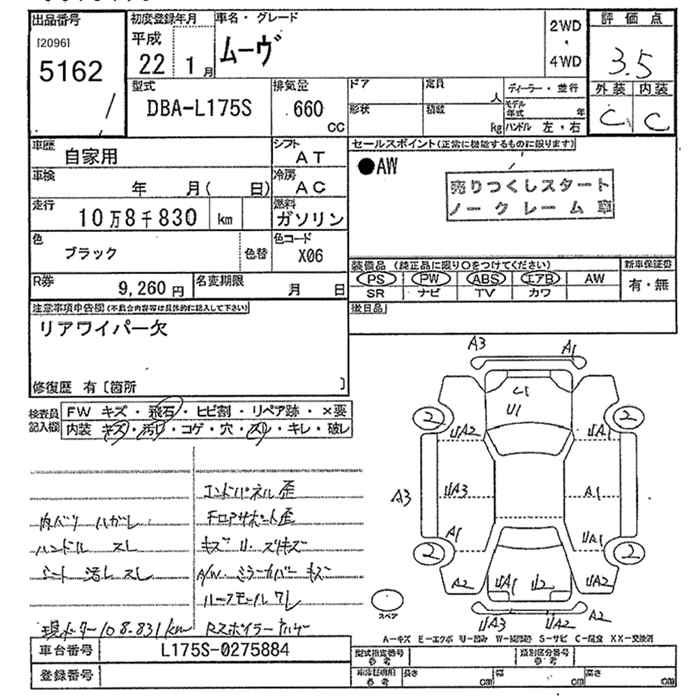 出品番号
[2096]
5162
初度登録年月
平成
22 1月
車名・グレード
ムーヴ
2WD
・
4WD
評価点
3.5
外装 内装
C C
型式
DBA-L175S
排気量
660
CC
ドア 定員 人
形状 積載 kg
ディーラー・並行
モデル年式 年
ハンドル 左・右
車歴
自家用
シフト
AT
車検 年 月( 日)
冷房
AC
走行
10万8千830 km
燃料
ガソリン
色
ブラック
色替
色コード
X06
R券
9,260円
名変期限 月 日
セールスポイント(正常に機能するものに限ります)
●AW
売りつくしスタート
ノークレーム車
装備品 (純正品に限り○をつけてください)
PS PW ABS エアB AW
SR ナビ TV カワ
新車保証書
有・無
後日品
注意事項申告欄(不具合内容等は具体的に記入して下さい)
リアワイパー欠
修復歴 有〔箇所 〕
検査員記入欄
FW キズ・飛石・ヒビ割・リペア跡・×要
内装 キズ・汚れ・コゲ・穴・スレ・キレ・破レ
コアパネル歪
内張り ハガレ
ハンドル スレ
キズ U. スリキズ
シート 汚レ スレ
A/W. ミラーカバー キズ
現メーター108.831km
車台番号 L175S-0275884
登録番号
A3 A1
C1
U1
2 2
UA2 UA1
A3 UA3 A1
A1 UA1
2 2
A2 UA1 U2 UA2
UA3 UA2
スペア
A-キズ E-エクボ U-凹み W-補修跡 S-サビ C-腐食 XX-交換済
型式指定番号
参考
類別区分番号
参考
車両諸元明
参考
長さ cm 幅 cm 高さ cm